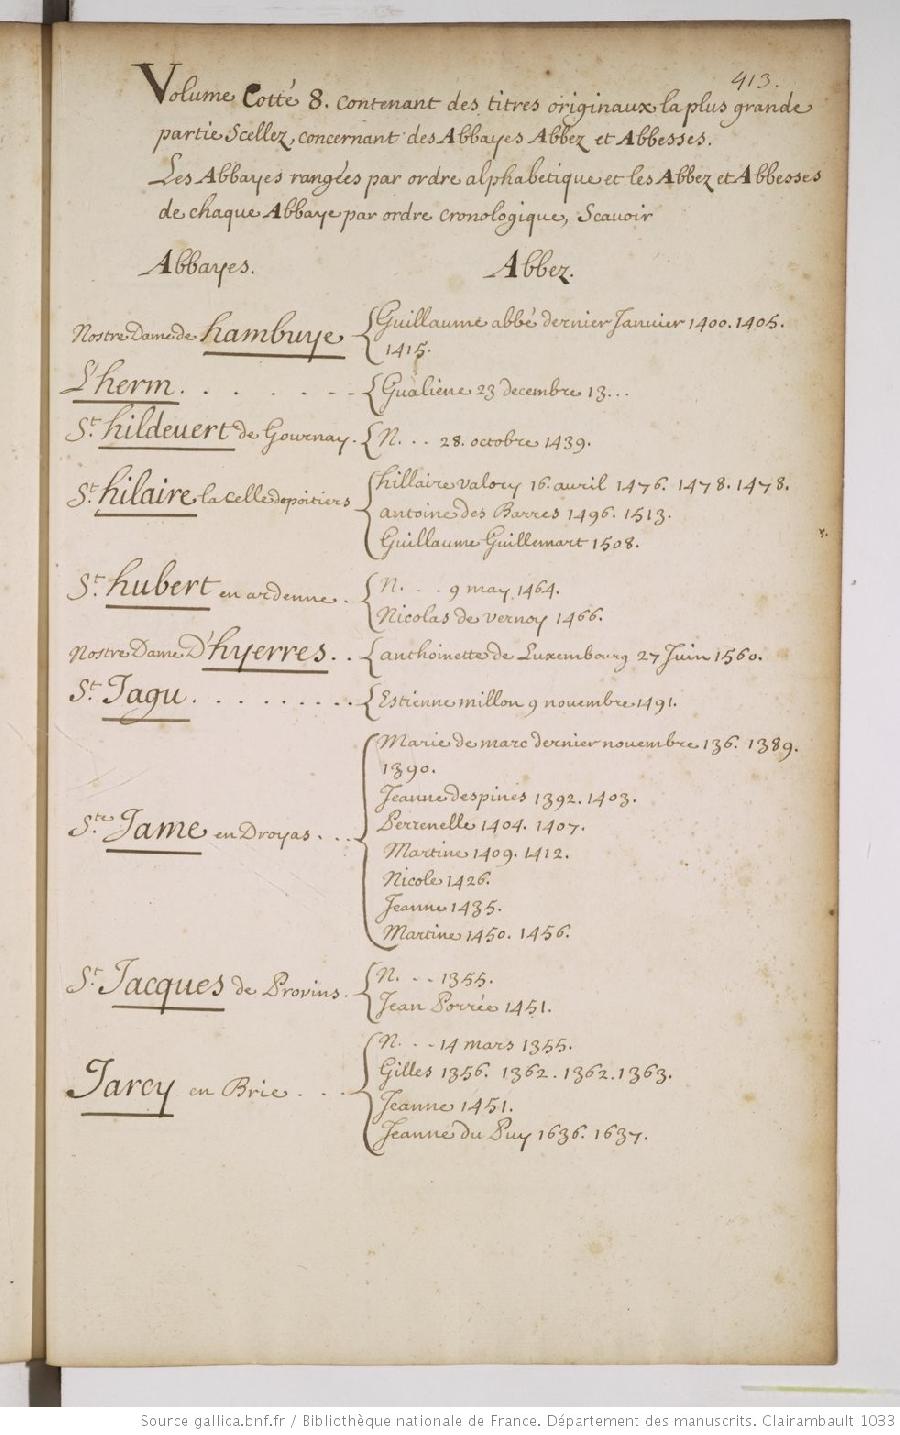 413.
Volume Cotté 8. contenant des titres originaux la plus grande
partie Scellez, concernant des Abbayes Abbez et Abbesses.
Les Abbayes rangées par ordre alphabetique et les Abbez et Abbesses
de chaque Abbaye par ordre cronologique, Scavoir
Abbayes. Abbez.
Nostre Dame de hambuye { Guillaume abbé dernier Janvier 1400. 1405.
1415.
L'herm. . . . . . . - - { Gualiene 23 decembre 13...
St. hildevert de Gournay. { N. . . 28. octobre 1439.
St hilaire la celle de poitiers { hillaire valory 16 avril 1476. 1478. 1478.
antoine des Barres 1496. 1513.
Guillaume Guillemart 1508.
St. hubert en ardenne. { N. . . 9 may, 1464.
Nicolas de vernoy 1466.
Nostre Dame D'hyerres. . { anthoinette de Luxembourg 27 Juin 1560.
St. Jagu. . . . . . . . . { Estienne millon 9 novembre 1491.
Ste Jame en Droyas. . . { Marie de marc dernier novembre 136. 1389.
1390.
Jeanne despines 1392. 1403.
Perrenelle 1404. 1407.
Martine 1409. 1412.
Nicole 1426.
Jeanne 1435.
Martine 1450. 1456.
St. Jacques de Provins. { N. . . 1355.
Jean Porrée 1451.
Jarcy en Brie . . . { N. . . 14 mars 1355.
Gilles 1356. 1362. 1362. 1363.
Jeanne 1451.
Jeanne du Puy 1636. 1637.
Source gallica.bnf.fr / Bibliothèque nationale de France. Département des manuscrits. Clairambault 1033